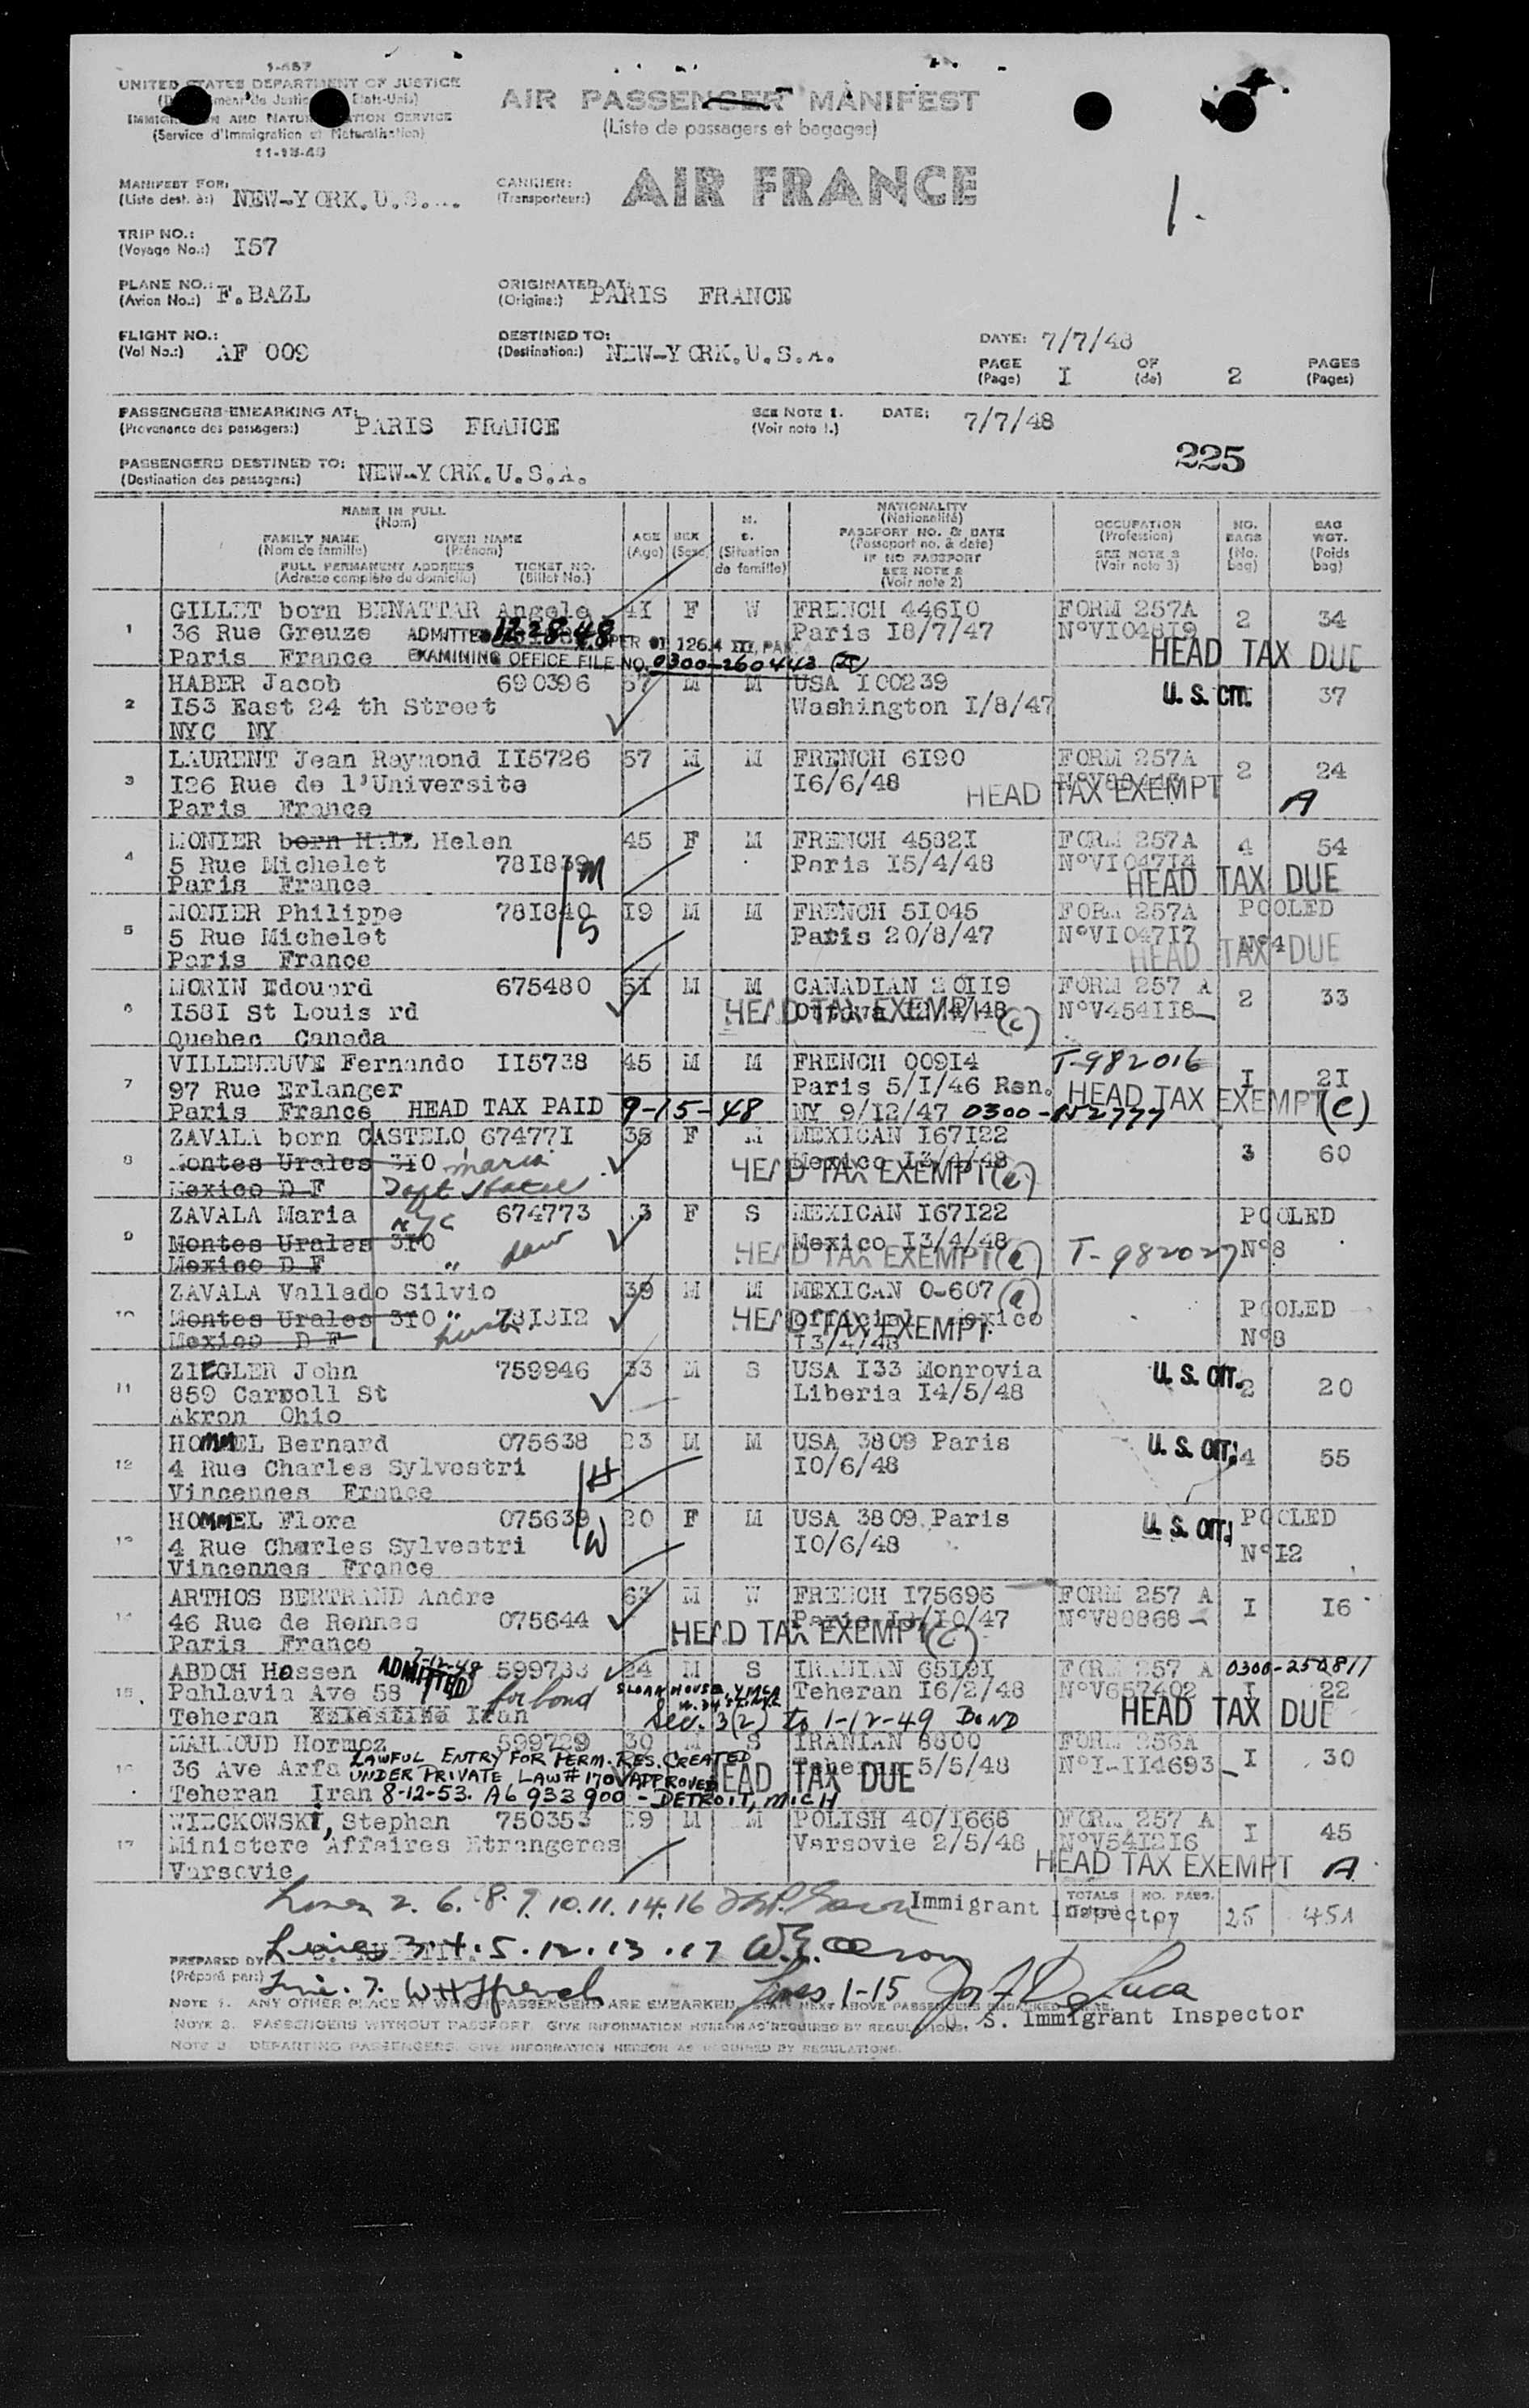 1-467
UNITED STATES DEPARTMENT OF JUSTICE
IMMIGRATION AND NATURALIZATION SERVICE
(Service d'Immigration et Naturalisation)
11-18-46
AIR PASSENGER MANIFEST
(Liste de passagers et bagages)
MANIFEST FOR: NEW-YORK.U.S.
(Liste dest. à:)
CARRIER: AIR FRANCE
(Transporteur:)
1.
TRIP NO.: I57
(Voyage No.:)
PLANE NO.: F.BAZL
(Avion No.:)
ORIGINATED AT: PARIS FRANCE
(Origine:)
FLIGHT NO.: AF 009
(Vol No.:)
DESTINED TO: NEW-YORK.U.S.A.
(Destination:)
DATE: 7/7/48
PAGE I OF 2 PAGES
(Page) (de) (Pages)
PASSENGERS EMBARKING AT: PARIS FRANCE
(Provenance des passagers:)
SEE NOTE 1. DATE: 7/7/48
(Voir note 1.)
225
PASSENGERS DESTINED TO: NEW-YORK.U.S.A.
(Destination des passagers:)
NAME IN FULL
(Nom)
FAMILY NAME GIVEN NAME
(Nom de famille) (Prénom)
FULL PERMANENT ADDRESS TICKET NO.
(Adresse complète du domicile) (Billet No.)
AGE
(Age)
SEX
(Sexe)
M.
S.
(Situation
de famille)
NATIONALITY
(Nationalité)
PASSPORT NO. & DATE
(Passeport no. & date)
IF NO PASSPORT
SEE NOTE 2
(Voir note 2)
OCCUPATION
(Profession)
SEE NOTE 3
(Voir note 3)
NO.
BAGS
(No.
bag)
BAG
WGT.
(Poids
bag)
1 GILLET born BENATTAR Angele 41 F W FRENCH 446I0 FORM 257A 2 34
36 Rue Greuze ADMITTED 12-28-48 PER 126.4 Paris I8/7/47 N°VI048I9
Paris France EXAMINING OFFICE FILE NO. 0300-260443 HEAD TAX DUE
2 HABER Jacob 690396 57 M M USA I00239 U.S. CIT. 37
I53 East 24 th Street Washington I/8/47
NYC NY
3 LAURENT Jean Raymond II5726 57 M M FRENCH 6I90 FORM 257A 2 24
I26 Rue de l'Universite I6/6/48 HEAD TAX EXEMPT A
Paris France
4 MONIER born Helen 45 F M FRENCH 4582I FORM 257A 4 54
5 Rue Michelet 781839 M Paris I5/4/48 N°VI047I4
Paris France HEAD TAX DUE
5 MONIER Philippe 781840 I9 M M FRENCH 5I045 FORM 257A POOLED
5 Rue Michelet S Paris 20/8/47 N°VI047I7 N°4
Paris France HEAD TAX DUE
6 MORIN Edouard 675480 51 M M CANADIAN 20II9 FORM 257 A 2 33
I58I St Louis rd HEAD TAX EXEMPT (c) N°V454II8
Quebec Canada
7 VILLENEUVE Fernando II5738 45 M M FRENCH 009I4 T-982016 I 2I
97 Rue Erlanger Paris 5/I/46 Ren. HEAD TAX EXEMPT (c)
Paris France HEAD TAX PAID 9-15-48 NY 9/I2/47 0300-152777
8 ZAVALA born CASTELO 67477I 35 F M MEXICAN I67I22 3 60
Montes Urales 3I0 maria Mexico I3/4/48 HEAD TAX EXEMPT (e)
Mexico D F
9 ZAVALA Maria NYC 674773 3 F S MEXICAN I67I22 POOLED
Montes Urales 3I0 Mexico I3/4/48 T-982027 N°8
Mexico D F " HEAD TAX EXEMPT (e)
10 ZAVALA Vallado Silvio 39 M M MEXICAN 0-607 (e) POOLED
Montes Urales 3I0 " 78I8I2 Official Mexico N°8
Mexico D F HEAD TAX EXEMPT I3/4/48
11 ZIEGLER John 759946 33 M S USA I33 Monrovia U.S. CIT. 2 20
859 Carroll St Liberia I4/5/48
Akron Ohio
12 HOMMEL Bernard 075638 23 M M USA 3809 Paris U.S. CIT. 4 55
4 Rue Charles Sylvestri H I0/6/48
Vincennes France
13 HOMMEL Flora 075639 20 F M USA 3809 Paris U.S. CIT. POOLED
4 Rue Charles Sylvestri W I0/6/48 N°I2
Vincennes France
14 ARTHOS BERTRAND Andre 63 M W FRENCH I75696 FORM 257 A I I6
46 Rue de Rennes 075644 HEAD TAX EXEMPT (c) N°V80868
Paris France
15 ABDOH Hassen ADMITTED 7-12-48 599733 24 M S IRANIAN 65I9I FORM 257 A 0300-250811
Pahlavia Ave 58 for bond SLOAN HOUSE, YMCA Teheran I6/2/48 N°V657402 I 22
Teheran Iran Sec. 3(2) to 1-12-49 BOND HEAD TAX DUE
16 MAHMOUD Hormoz 599729 30 M S IRANIAN 8800 FORM 256A
36 Ave Arfa LAWFUL ENTRY FOR PERM. RES. CREATED Teheran 5/5/48 N°I-II4693 I 30
UNDER PRIVATE LAW # 170 APPROVED HEAD TAX DUE
Teheran Iran 8-12-53. A6 933 900 - DETROIT, MICH
17 WIECKOWSKI, Stephan 750353 39 M M POLISH 40/I668 FORM 257 A I 45
Ministere Affaires Etrangeres Varsovie 2/5/48 N°V54I2I6
Varsovie HEAD TAX EXEMPT A
Lines 2. 6. 8. 9. 10. 11. 14. 16 Immigrant Inspector
TOTALS NO. PASS. 17 25 451
PREPARED BY
(Préparé par:)
Lines 3.4.5.12.13.17
Line. 7. W H French
Lines 1-15 Jos F De Luca
U. S. Immigrant Inspector
NOTE 1. ANY OTHER PLACE AT WHICH PASSENGERS ARE EMBARKED, NEXT ABOVE PASSENGERS EMBARKED THERE.
NOTE 2. PASSENGERS WITHOUT PASSPORT, GIVE INFORMATION HEREON AS REQUIRED BY REGULATIONS.
NOTE 3 DEPARTING PASSENGERS, GIVE INFORMATION HEREON AS REQUIRED BY REGULATIONS.